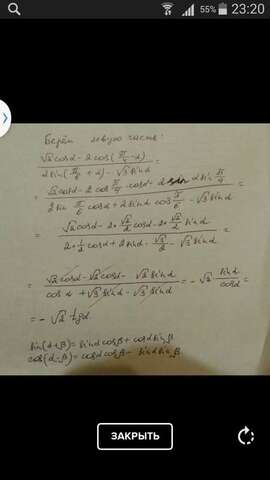 55% 23:20
Берём левую часть:
√2 cosα - 2 cos(π/4 - α) / 2 sin(π/6 + α) - √3 sinα =
= √2 cosα - 2 cos π/4 · cosα - 2 sinα sin π/4 / 2 sin π/6 cosα + 2 sinα cos π/6 - √3 sinα =
= √2 cosα - 2·√2/2 cosα - 2·√2/2 sinα / 2·1/2 cosα + 2 sinα · √3/2 - √3 sinα =
= √2 cosα - √2 cosα - √2 sinα / cosα + √3 sinα - √3 sinα = - √2 sinα/cosα =
= - √2 tgα.
sin(α+β) = sinα cosβ + cosα sinβ
cos(α-β) = cosα cosβ - sinα sinβ.
ЗАКРЫТЬ